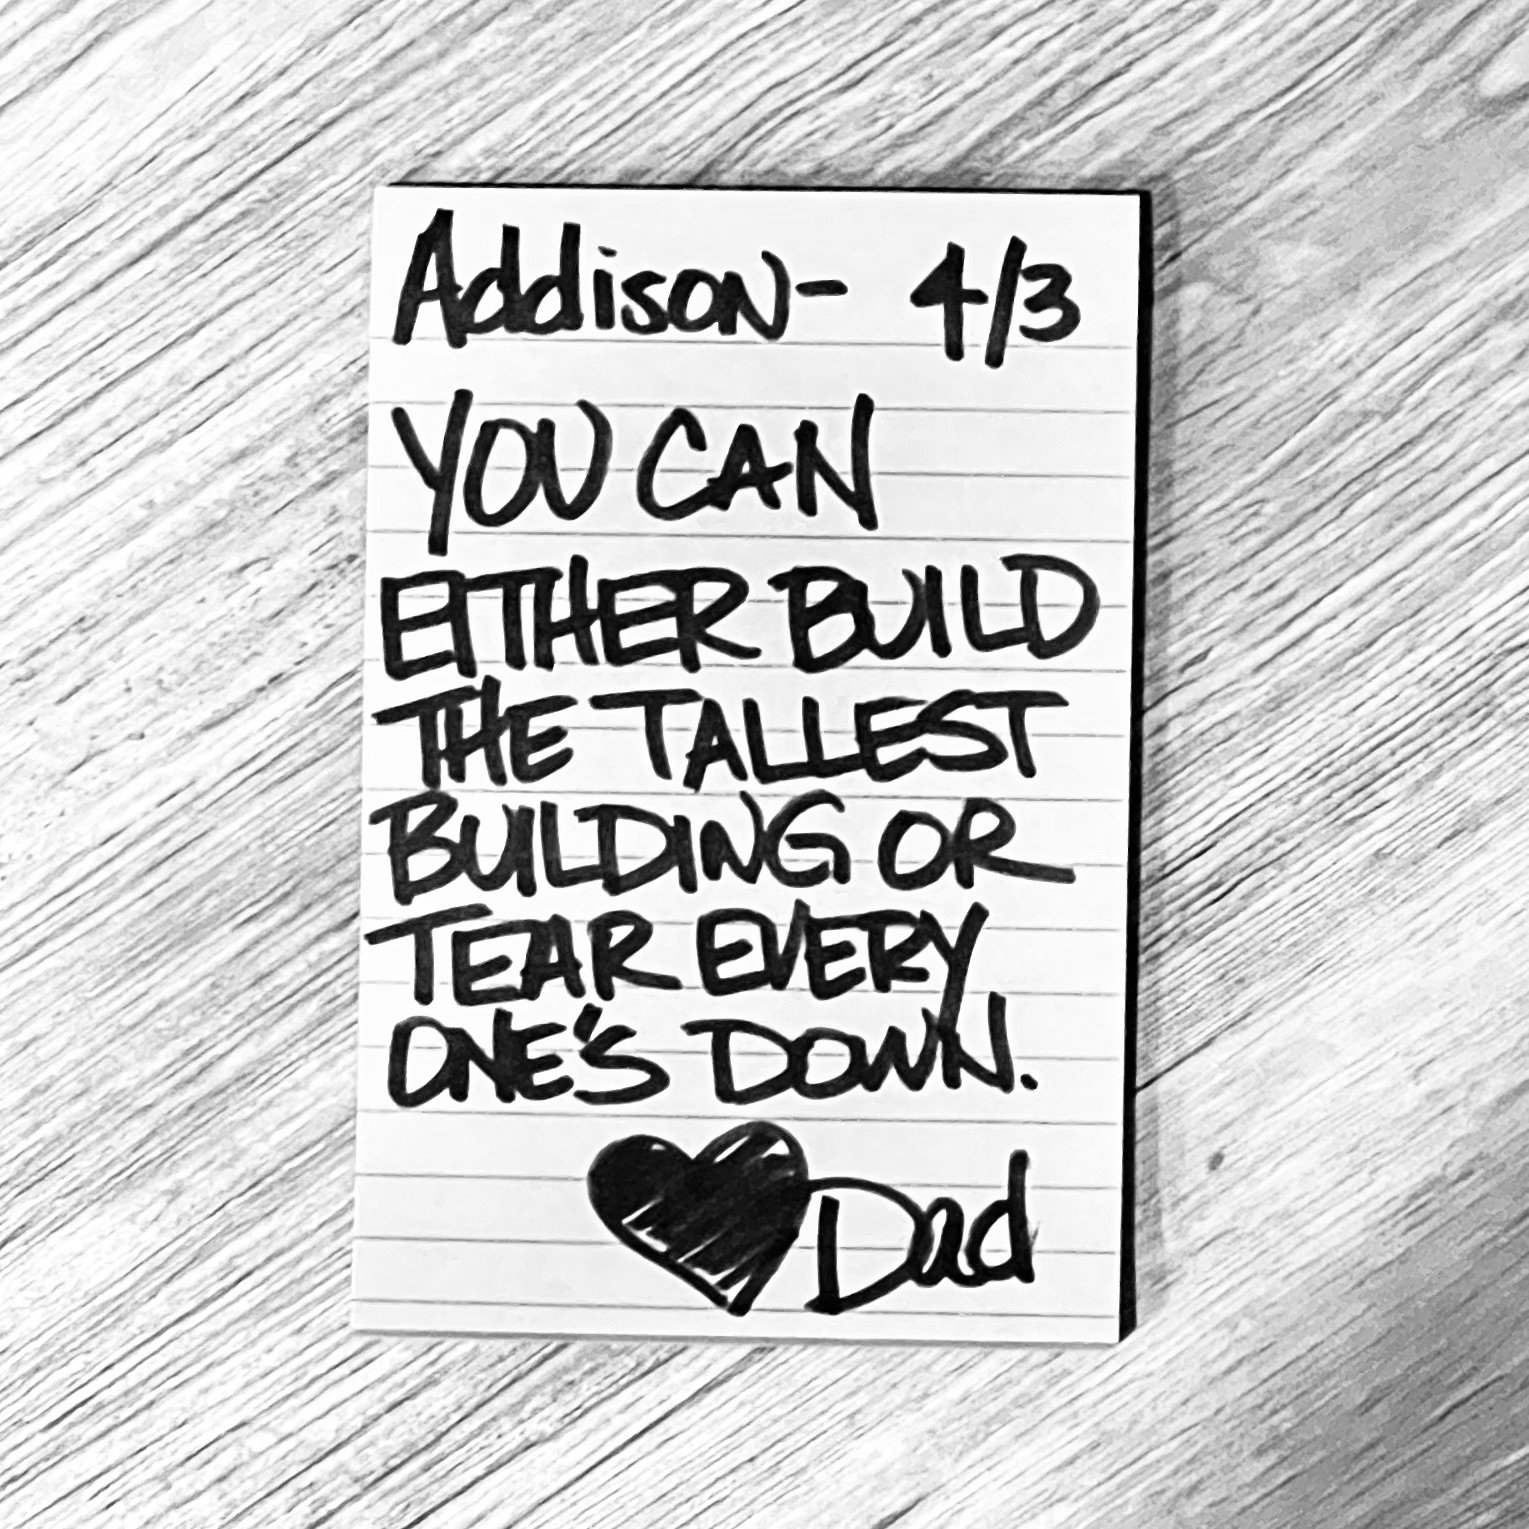 Addison- 4/3
YOU CAN
EITHER BUILD
THE TALLEST
BUILDING OR
TEAR EVERY
ONE'S DOWN.
♥ Dad